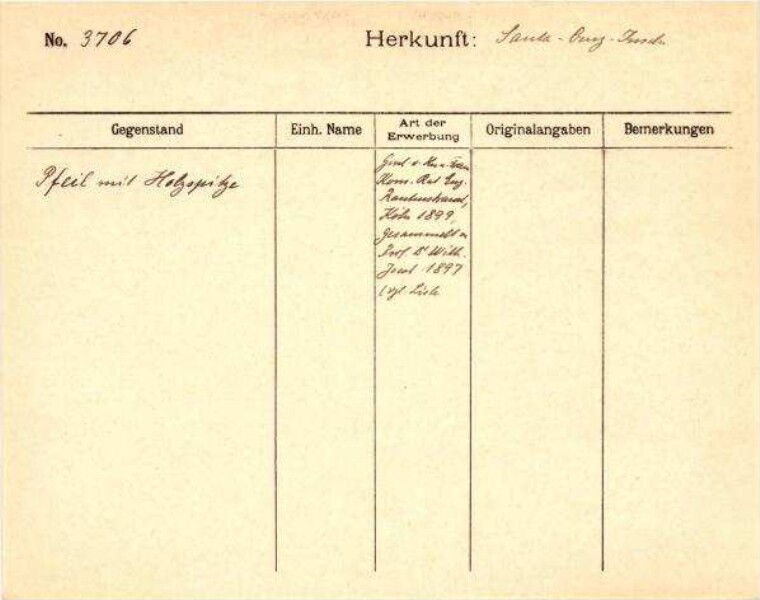 No. 3706 Herkunft: Santa-Cruz-Inseln
Gegenstand Einh. Name Art der Erwerbung Originalangaben Bemerkungen
Pfeil mit Holzspitze
Kom. Rat Eug.
Rautenstrauch,
Köln 1899,
gesammelt v.
Prof. Dr Wilh.
Joest 1897
(vgl. Liste